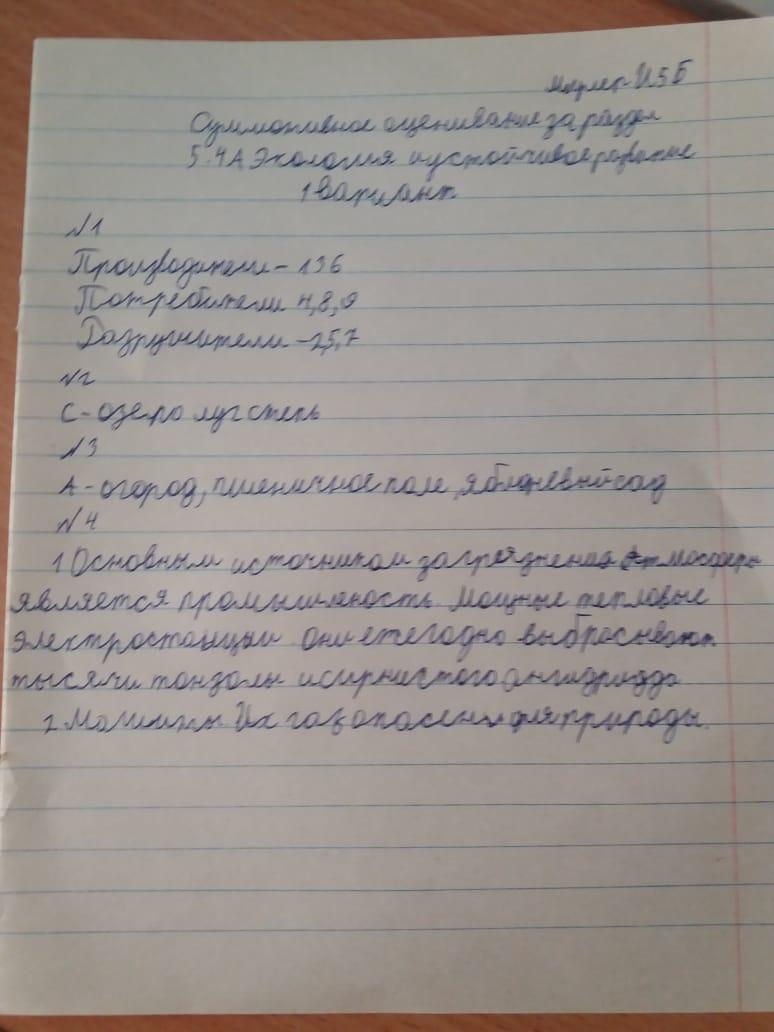 Мирлер И 5 Б
Суммативное оценивание за раздел
5.4А Экология и устойчивое развитие
1 вариант
№1
Производители - 1 3 6
Потребители 4,8,9
Разрушители - 2,5,7
№2
С - озеро луг степь
№3
А - огород, пшеничное поле, яблоневый сад
№4
1 Основным источником загрязнения атмосферы
является промышленость. Мощные тепловые
электростанции они ежегодно выбросывают
тысячи тонзолы и сирнистого ангидридда
2 Машины. Их газ опасен для природы.